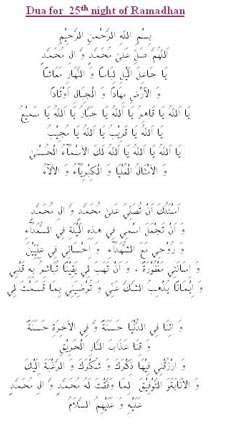 Dua for 25th night of Ramadhan
بِسْمِ اللهِ الرَّحْمٰنِ الرَّحِيْمِ
اَللّٰهُمَّ صَلِّ عَلىٰ مُحَمَّدٍ وَّ الِ مُحَمَّدٍ
يَا جَاعِلَ الَّيْلِ لِبَاسًا وَّ النَّهَارِ مَعَاشًا
وَّ الْاَرْضِ مِهَادًا وَّ الْجِبَالِ اَوْتَادًا
يَا اَللهُ يَا قَاهِرُ يَا اَللهُ يَا جَبَّارُ يَا اَللهُ يَا سَمِيْعُ
يَا اَللهُ يَا قَرِيْبُ يَا اَللهُ يَا مُجِيْبُ
يَا اَللهُ يَا اَللهُ يَا اَللهُ لَكَ الْاَسْمَاۤءُ الْحُسْنىٰ
وَ الْاَمْثَالُ الْعُلْيَا وَ الْكِبْرِيَاۤءُ وَ الْاٰلَاۤءُ
اَسْئَلُكَ اَنْ تُصَلِّيَ عَلىٰ مُحَمَّدٍ وَّ الِ مُحَمَّدٍ
وَّ اَنْ تَجْعَلَ اسْمِيْ فِيْ هٰذِهِ الَّيْلَةِ فِي السُّعَدَاۤءِ
وَ رُوْحِيْ مَعَ الشُّهَدَاۤءِ وَ اِحْسَانِيْ فِيْ عِلِّيِّيْنَ
وَ اِسَاۤئَتِيْ مَغْفُوْرَةً وَّ اَنْ تَهَبَ لِيْ يَقِيْنًا تُبَاشِرُ بِهِ قَلْبِيْ
وَ اِيْمَانًا يُّذْهِبُ الشَّكَّ عَنِّيْ وَ تُرْضِيَنِيْ بِمَا قَسَمْتَ لِيْ
وَ اٰتِنَا فِي الدُّنْيَا حَسَنَةً وَّ فِي الْاٰخِرَةِ حَسَنَةً
وَّ قِنَا عَذَابَ النَّارِ الْحَرِيْقِ
وَ ارْزُقْنِيْ فِيْهَا ذِكْرَكَ وَ شُكْرَكَ وَ الرَّغْبَةَ اِلَيْكَ
وَ الْاِنَابَةَ وَ التَّوْفِيْقَ لِمَا وَفَّقْتَ لَهُ مُحَمَّدًا وَّ الَ مُحَمَّدٍ
عَلَيْهِ وَ عَلَيْهِمُ السَّلَامُ